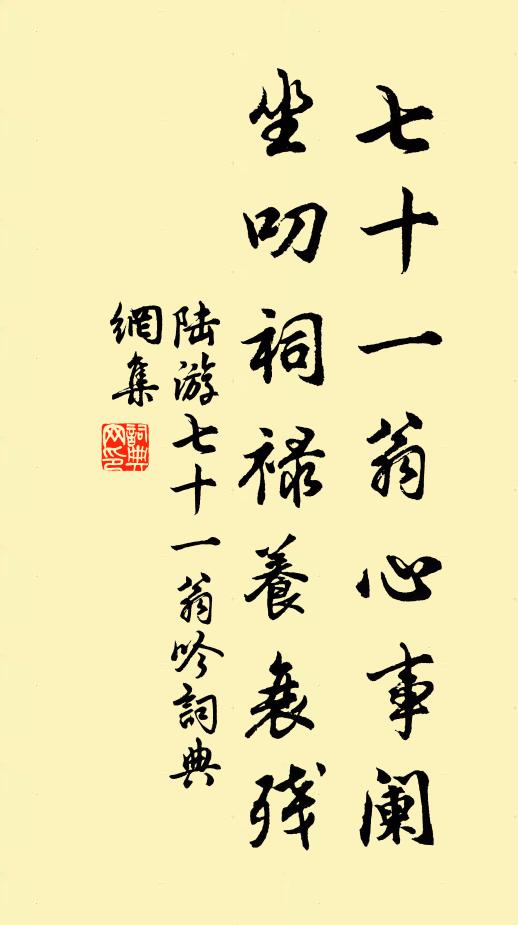 七十一翁心事阑
坐叨祠禄養衰残
陆游七十一翁吟詞典
網集
詞典網印